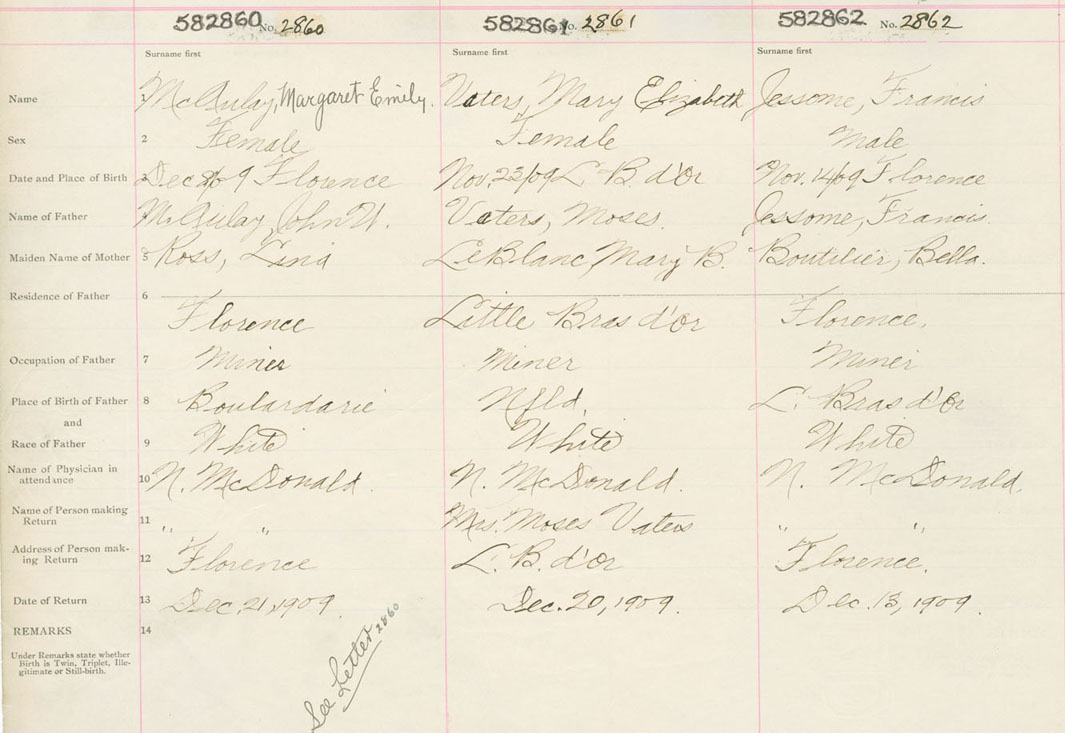 582860 No. 2860 582861 No. 2861 582862 No. 2862
Surname first Surname first Surname first
Name 1 McAulay, Margaret Emily. Vaters, Mary Elizabeth Jessome, Francis
Sex 2 Female Female Male
Date and Place of Birth 3 Dec 9 Florence Nov. 23/09 L B. d'Or Nov. 14/09 Florence
Name of Father McAulay, John W. Vaters, Moses. Jessome, Francis.
Maiden Name of Mother 5 Ross, Lina LeBlanc, Mary B. Boutilier, Bella.
Residence of Father 6
Florence Little Bras d'Or Florence.
Occupation of Father 7 Miner Miner Miner
Place of Birth of Father 8 Boulardarie Nfld. L. Bras d'Or
and
Race of Father 9 White White White
Name of Physician in
attendance 10 N. McDonald. N. McDonald. N. McDonald.
Name of Person making
Return 11 " " Mrs. Moses Vaters " "
Address of Person mak-
ing Return 12 Florence L. B. d'Or Florence.
Date of Return 13 Dec. 21, 1909. Dec. 20, 1909. Dec. 13, 1909.
REMARKS 14
Under Remarks state whether
Birth is Twin, Triplet, Ille-
gitimate or Still-birth.
See Letter 2860